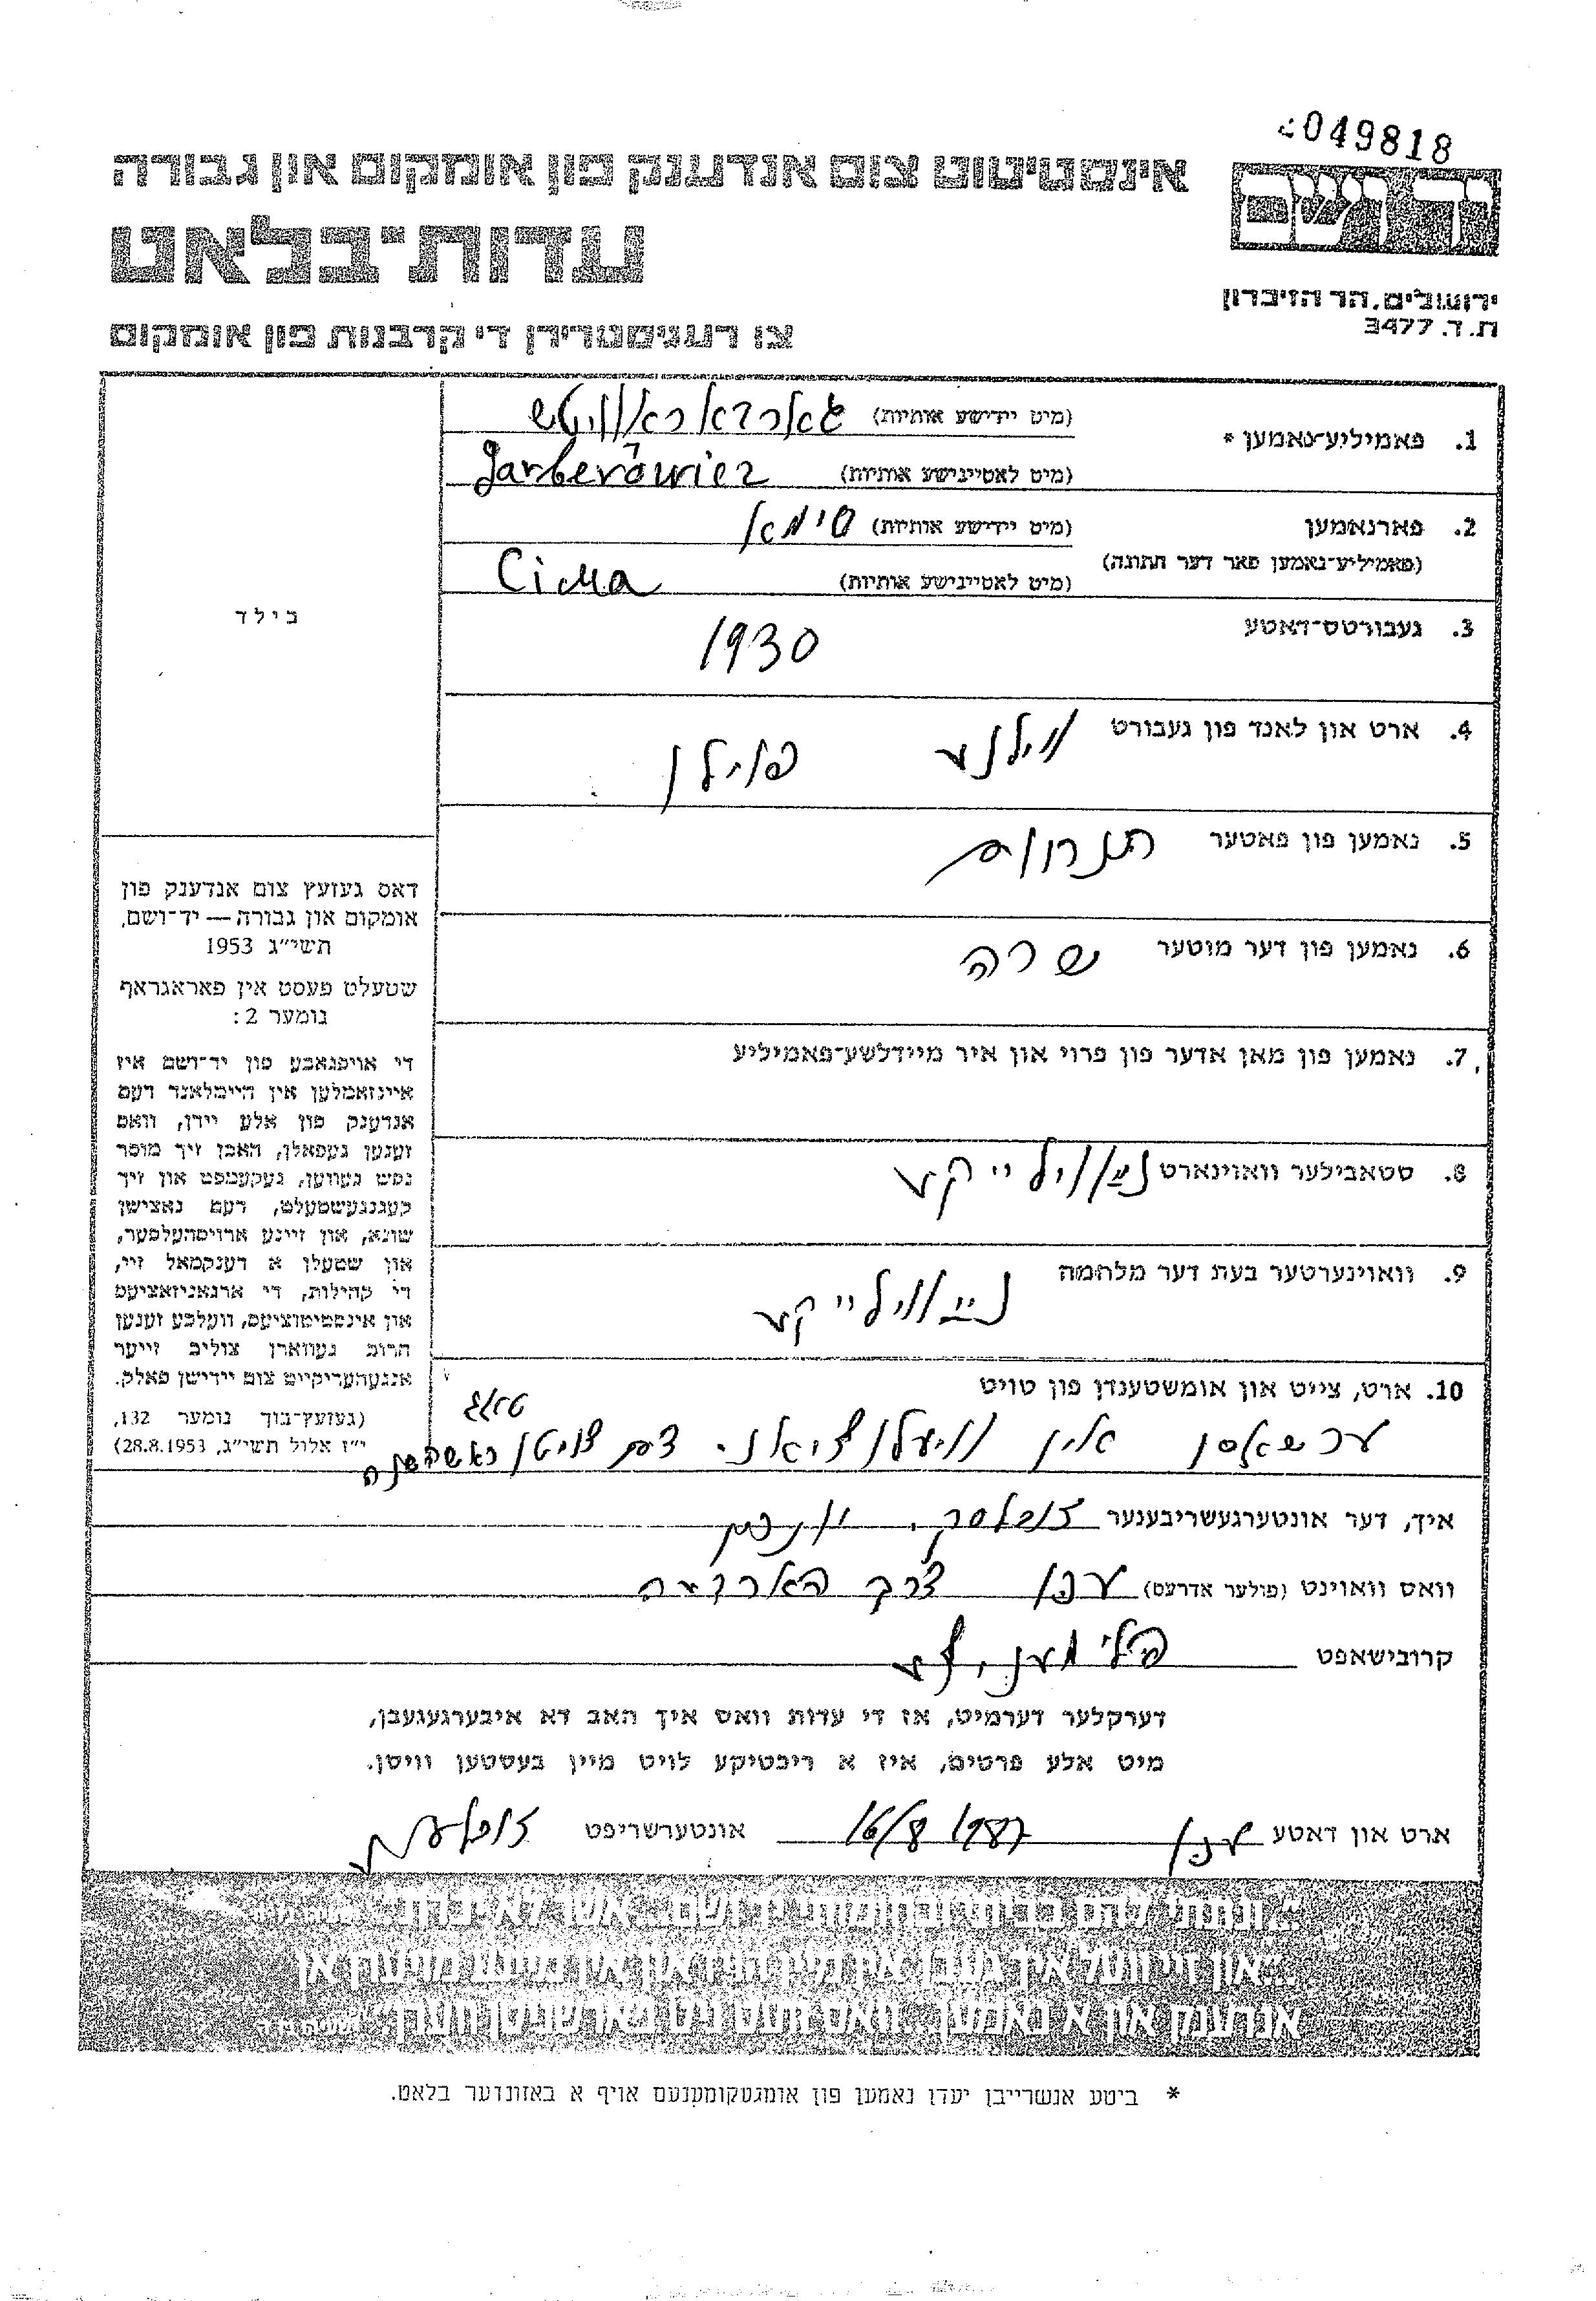 049818
אינסטיטוט צום אנדענק פון אומקום און גבורה
יד ושם
עדות-בלאט
ירושלים, הר הזיכרון
ת.ד. 3477
צו רעגיסטרירן די קרבנות פון אומקום
1. פאמיליע-נאמען *
(מיט יידישע אותיות) גארבאראוויטש
(מיט לאטייניشע אותיות) Garberowicz
2. פארנאמען
(פאמיליע-נאמען פאר דער חתונה)
(מיט יידישע אותיות) סימא
(מיט לאטיינישע אותיות) Cima
3. געבורטס-דאטע 1930
4. ארט און לאנד פון געבורט ווילנע פוילן
5. נאמען פון פאטער
6. נאמען פון דער מוטער שרה
7. נאמען פון מאן אדער פון פרוי און איר מיידלשע-פאמיליע
8. סטאבילער וואוינארט נײַ ווילייקע
9. וואוינערטער בעת דער מלחמה נײַ ווילייקע
10. ארט, צייט און אומשטענדן פון טויט
טאג
ערשאסן אין דעם צווייטן ראש השנה
בילד
דאס געזעץ צום אנדענק פון
אומקום און גבורה — יד-ושם,
תשי״ג 1953
שטעלט פעסט אין פאראגראף
נומער 2:
די אויפגאבע פון יד-ושם איז
איינזאמלען אין היימלאנד דעם
אנדענק פון אלע יידן, וואס
זענען געפאלן, האבן זיך מוסר
נפש געווען, געקעמפט און זיך
קעגנגעשטעלט, דעם נאצישן
שונא, און זייגע ארויסהעלפער,
און שטעלן א דענקמאל זיי,
די קהילות, די ארגאניזאציעס
און אינסטיטוציעס, וועלכע זענען
חרוב געווארן צוליב זייער
אנגעהעריקייט צום יידישן פאלק.
(געזעץ-בוך נומער 132,
י״ז אלול תשי״ג, 28.8.1953)
איך, דער אונטערגעשריבענער
וואס וואוינט (פולער אדרעס) עכו דרך הארבעה
קרובישאפט
דערקלער דערמיט, אז די עדות וואס איך האב דא איבערגעגעבן,
מיט אלע פרטים, איז א ריכטיקע לויט מיין בעסטען וויסן.
ארט און דאטע עכו 16/8 1987 אונטערשריפט
״...ונתתי להם בביתי ובחומותי יד ושם... אשר לא יכרת״
״...און זיי וועל איך געבן אין מיין הויז און אין מיינע מויערן אן
אנדענק און א נאמען... וואס וועט ניט פארשניטן ווערן.״
* ביטע אנשרייבן יעדן נאמען פון אומגעקומענעם אויף א באזונדער בלאט.